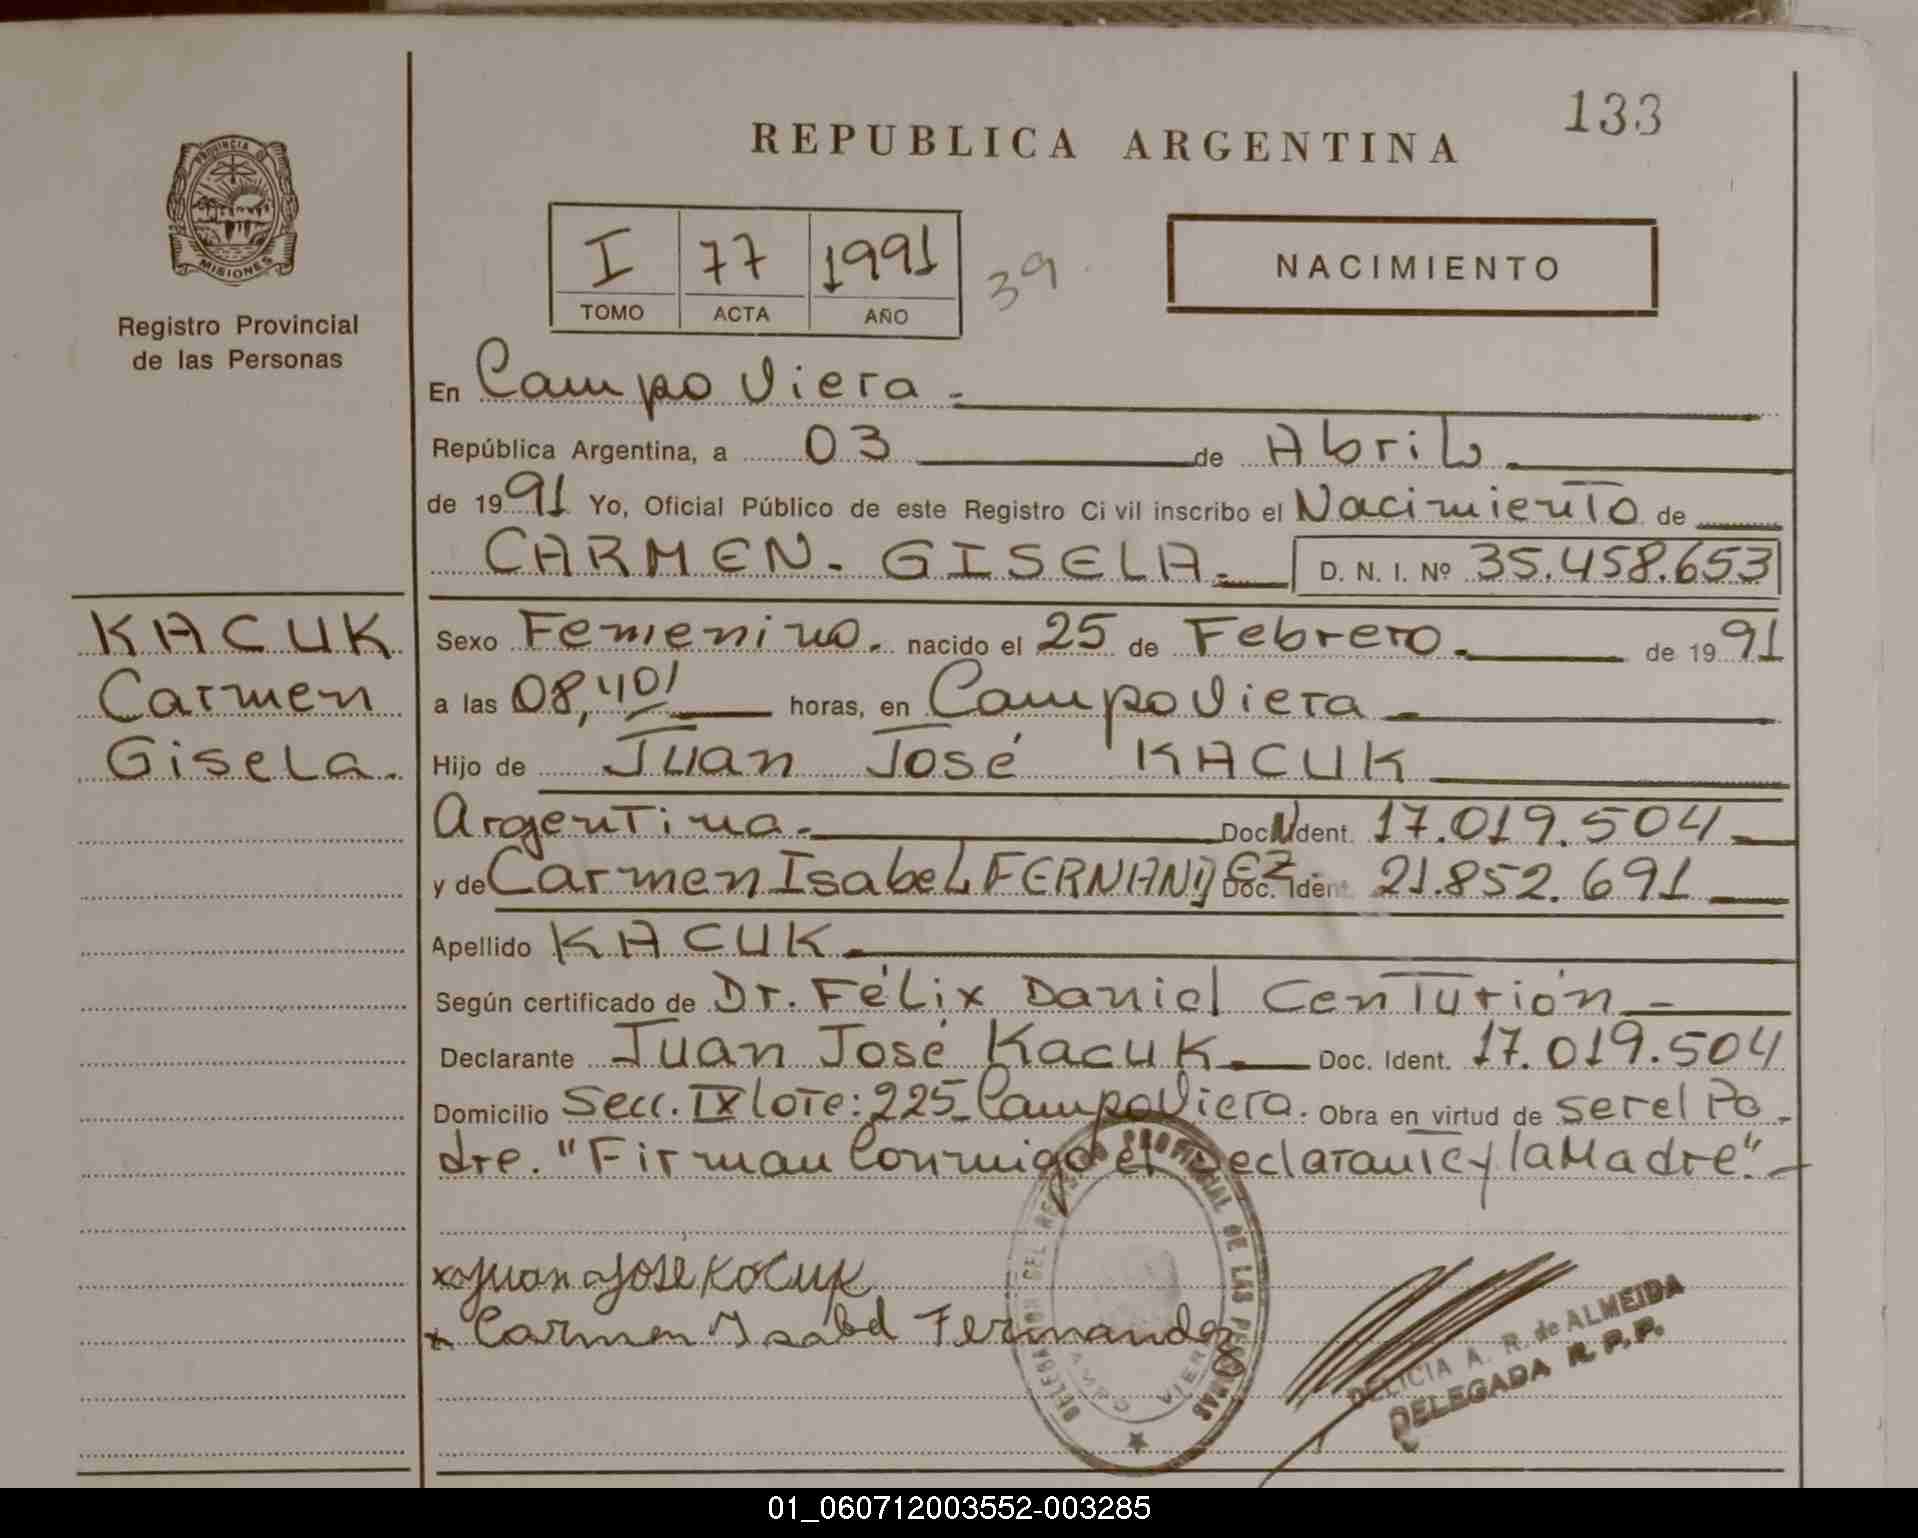 133
REPUBLICA ARGENTINA
PROVINCIA DE
MISIONES
Registro Provincial
de las Personas
I 77 1991
TOMO ACTA AÑO
39
NACIMIENTO
En Campo Viera.
República Argentina, a 03 de Abril
de 1991 Yo, Oficial Público de este Registro Civil inscribo el Nacimiento de
CARMEN. GISELA. D. N. I. Nº 35.458.653
KACUK
Carmen
Gisela.
Sexo Femenino. nacido el 25 de Febrero. de 1991
a las 08,40' horas, en Campo Viera
Hijo de Juan José KACUK
Argentina. Doc. Ident. 17.019.504
y de Carmen Isabel FERNANDEZ Doc. Ident. 21.852.691
Apellido KACUK.
Según certificado de Dr. Félix Daniel Centurión
Declarante Juan José Kacuk. Doc. Ident. 17.019.504
Domicilio Secc. IX lote: 225 Campo Viera. Obra en virtud de ser el Pa-
dre. "Firman Conmigo el Declarante y la Madre."
x Juan Jose Kacuk
x Carmen Ysabel Fernandez
DELEGACION DEL REGISTRO PROVINCIAL DE LAS PERSONAS
CAMPO VIERA
DELICIA A. R. de ALMEIDA
DELEGADA R. P. P.
01_060712003552-003285